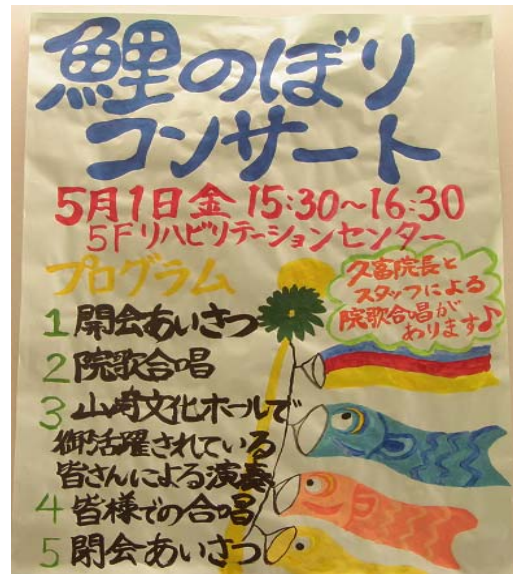 鯉のぼり
コンサート
5月1日金 15:30～16:30
5Fリハビリテーションセンター
プログラム
久富院長と
スタッフによる
院歌合唱が
あります♪
1 開会あいさつ
2 院歌合唱
3 山崎文化ホールで
御活躍されている
皆さんによる演奏
4 皆様での合唱
5 閉会あいさつ